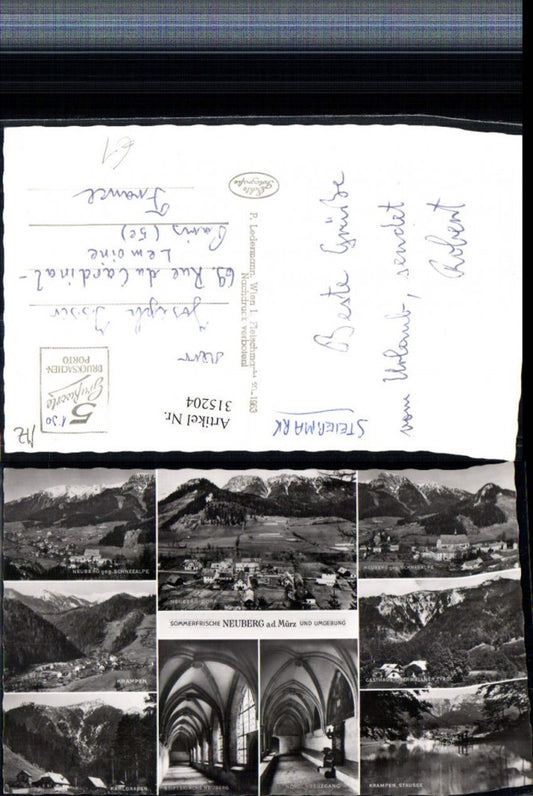 Beste Grüße
vom Urlaub, sendet
Robert
STEIERMARK
Herrn
Joseph
69. Rue du Cardinal-
Lemoine
Paris (5e)
France
5
Grußworte
DRUCKSACHEN-
PORTO
1'50
Artikel Nr.
315204
Echte
Fotografie
P. Ledermann, Wien I, Fleischmarkt 1963
Nachdruck verboten!
NEUBERG geg. SCHNEEALPE
NEUBERG
NEUBERG geg. SCHNEEALPE
KRAMPEN
SOMMERFRISCHE NEUBERG a.d. Mürz UND UMGEBUNG
GASTHAUS TIROL
KARLGRABEN
STIFTSKIRCHE NEUBERG
KREUZGANG
KRAMPEN, STAUSEE